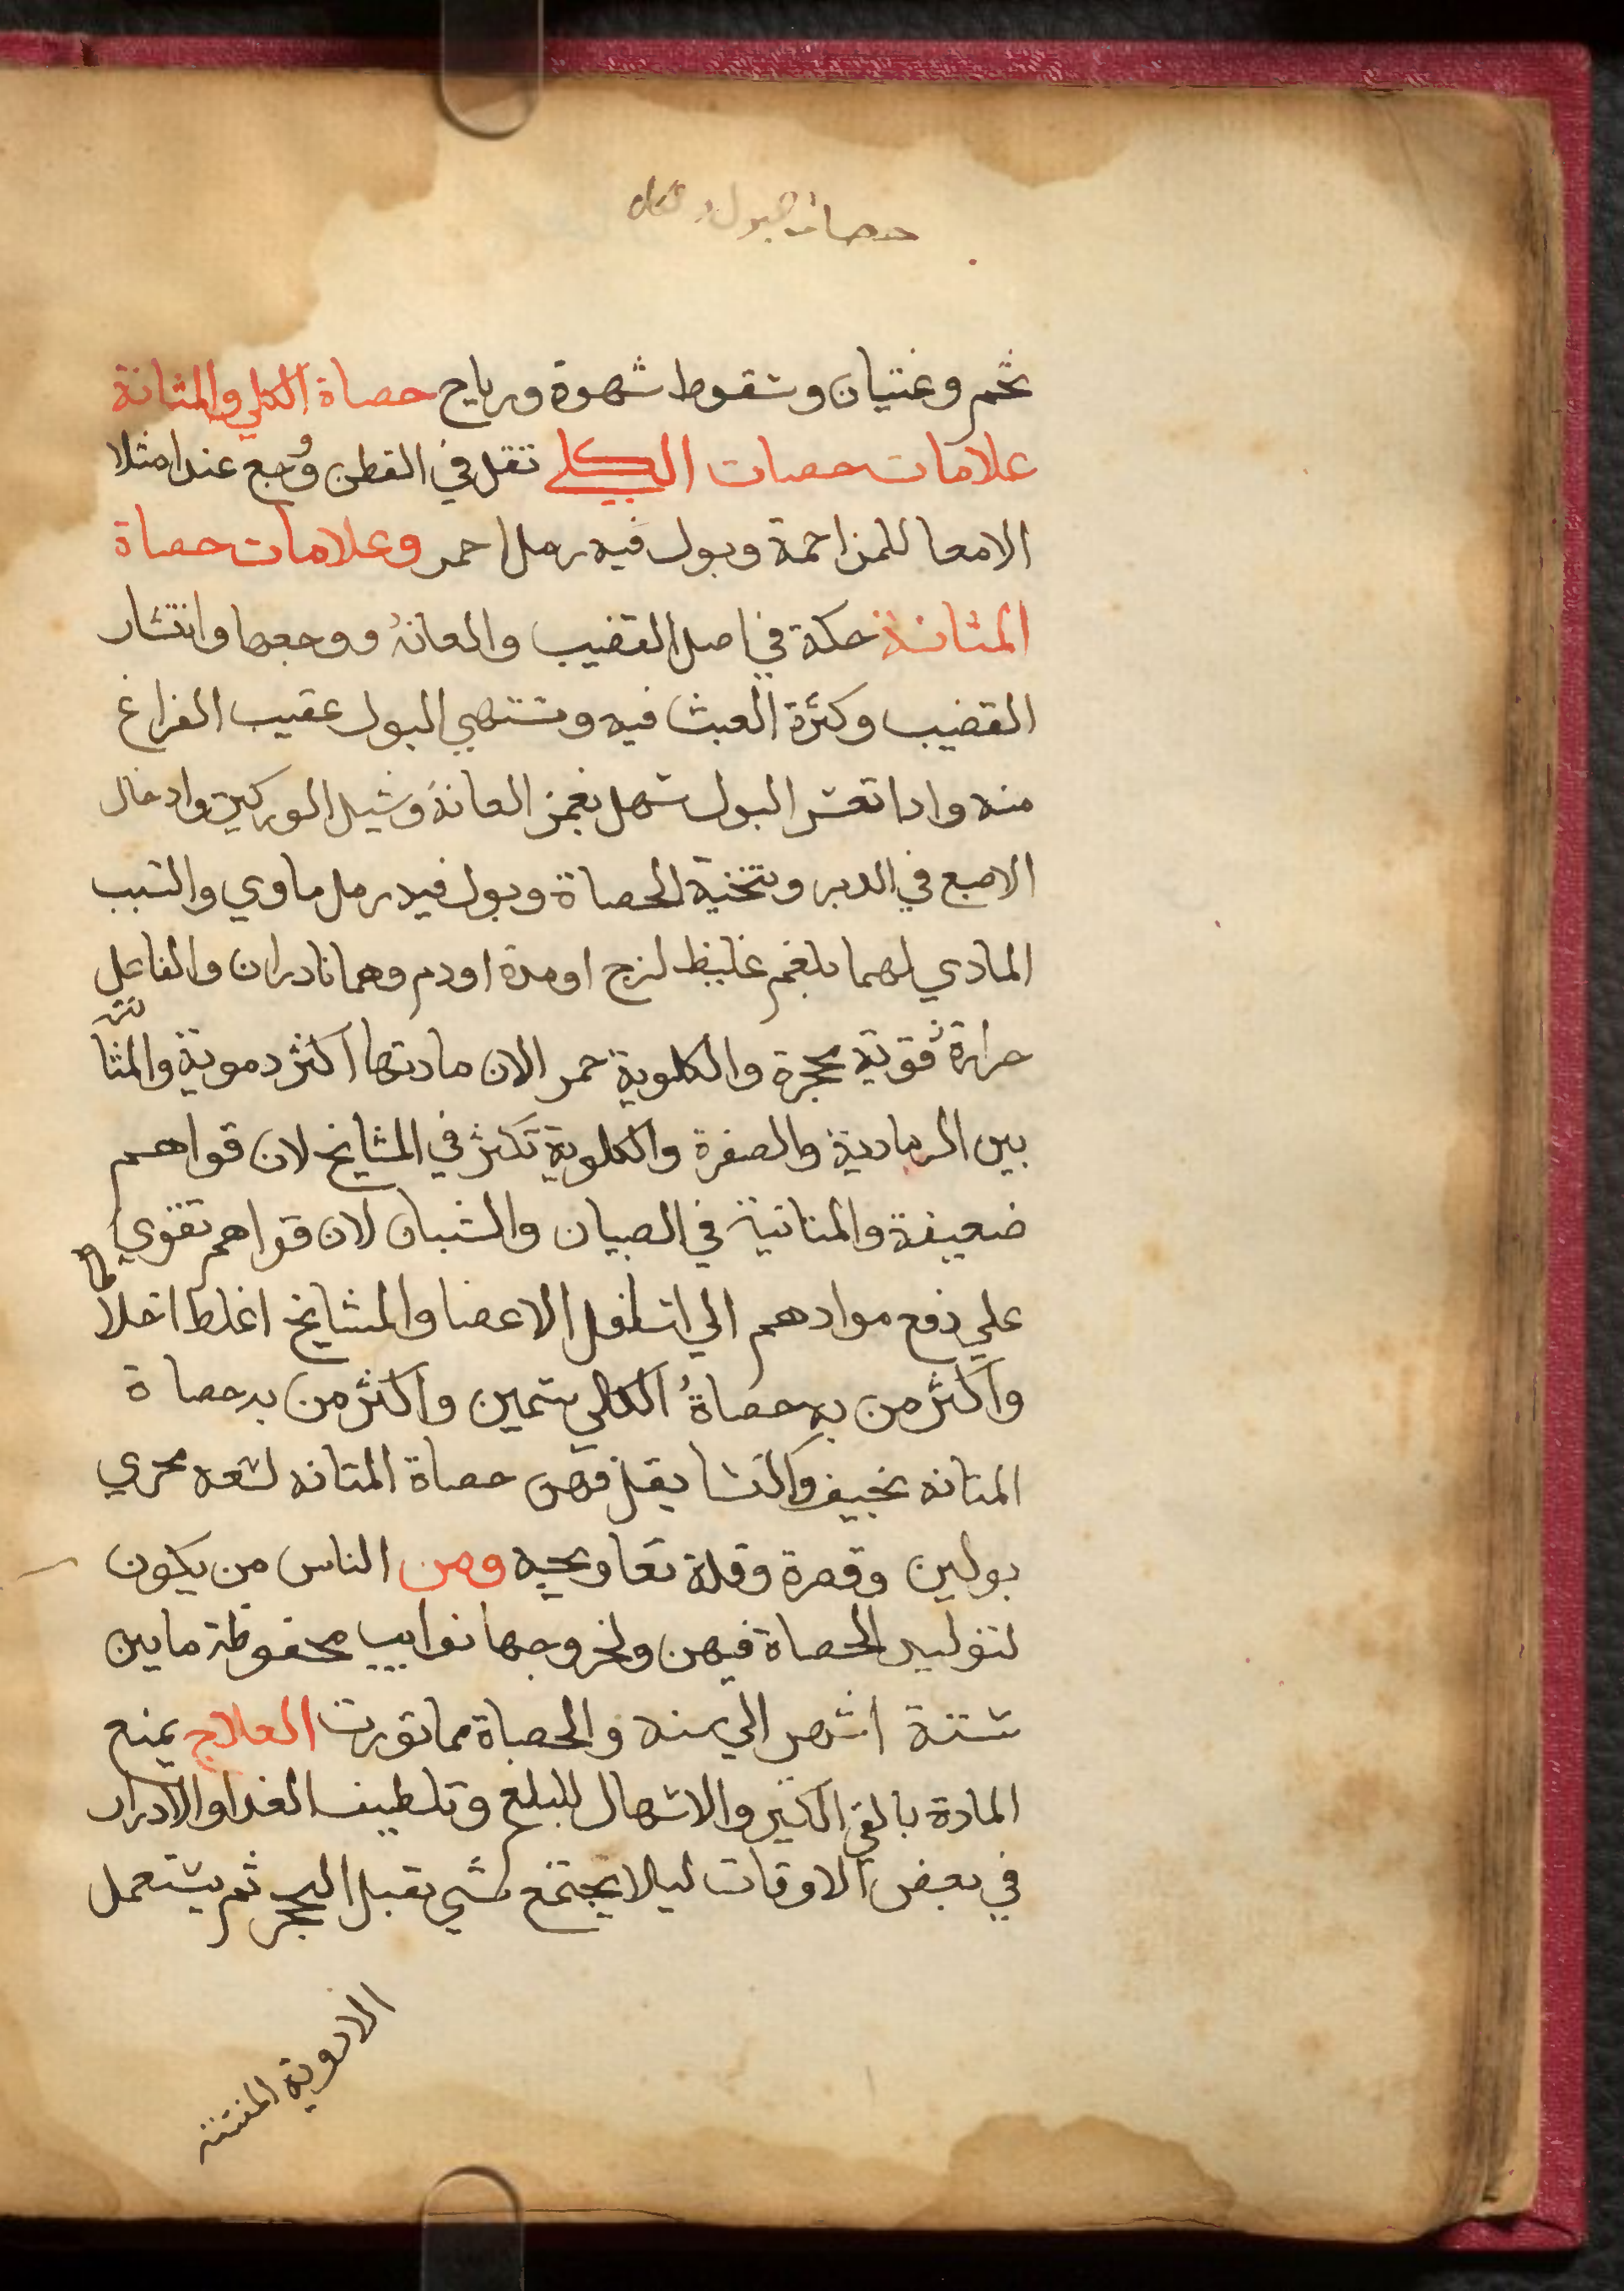 حصات البول
تخم وغثيان وسقوط شهوة ورياح حصاة الكلي والمثانة
علامات حصات الكلي ثقل في القطن ووجع عند امتلا
الامعا للمزاحمة وبول فيه رمل احمر وعلامات حصاة
المثانة حكة في اصل القضيب والعانة ووجعها وانتشار
القضيب وكثرة العبث فيه وتشتهي البول عقيب الفراغ
منه واذا تعسر البول سهل بغمز العانة وشيل الوركين وادخال
الاصبع في الدبر وتنحية الحصاة وبول فيه رمل ماوي والسبب
المادي لهما بلغم غليظ لزج اومدة اودم وهما نادران والفاعل
حرارة قوية محجرة والكلوية حمر الان مادتها اكثر دموية والمثانية
بين الرمادية والصفرة والكلوية تكثر في المشايخ لان قواهم
ضعيفة والمثانية في الصبيان والشبان لان قواهم تقوي
علي دفع موادهم الي اسفل الاعضا والمشايخ اغلظ اخلاطا
واكثر من به حصاة الكلي سمين واكثر من به حصاة
المثانه نحيف والنسا يقل فيهن حصاة المثانه لسعه مجري
بولهن وقصرة وقلة تعاويجه ومن الناس من يكون
لتوليد الحصاة فيهن ولخروجها نوايب محفوظة مابين
ستة اشهر الي سنه والحصاة مما تورث العلاج يمنع
المادة بالقي الكثير والاسهال للبلغم وتلطيف الغدا والادرار
في بعض الاوقات ليلا يجتمع شي يقبل التحجر ثم يستعمل
الادوية المفتتة